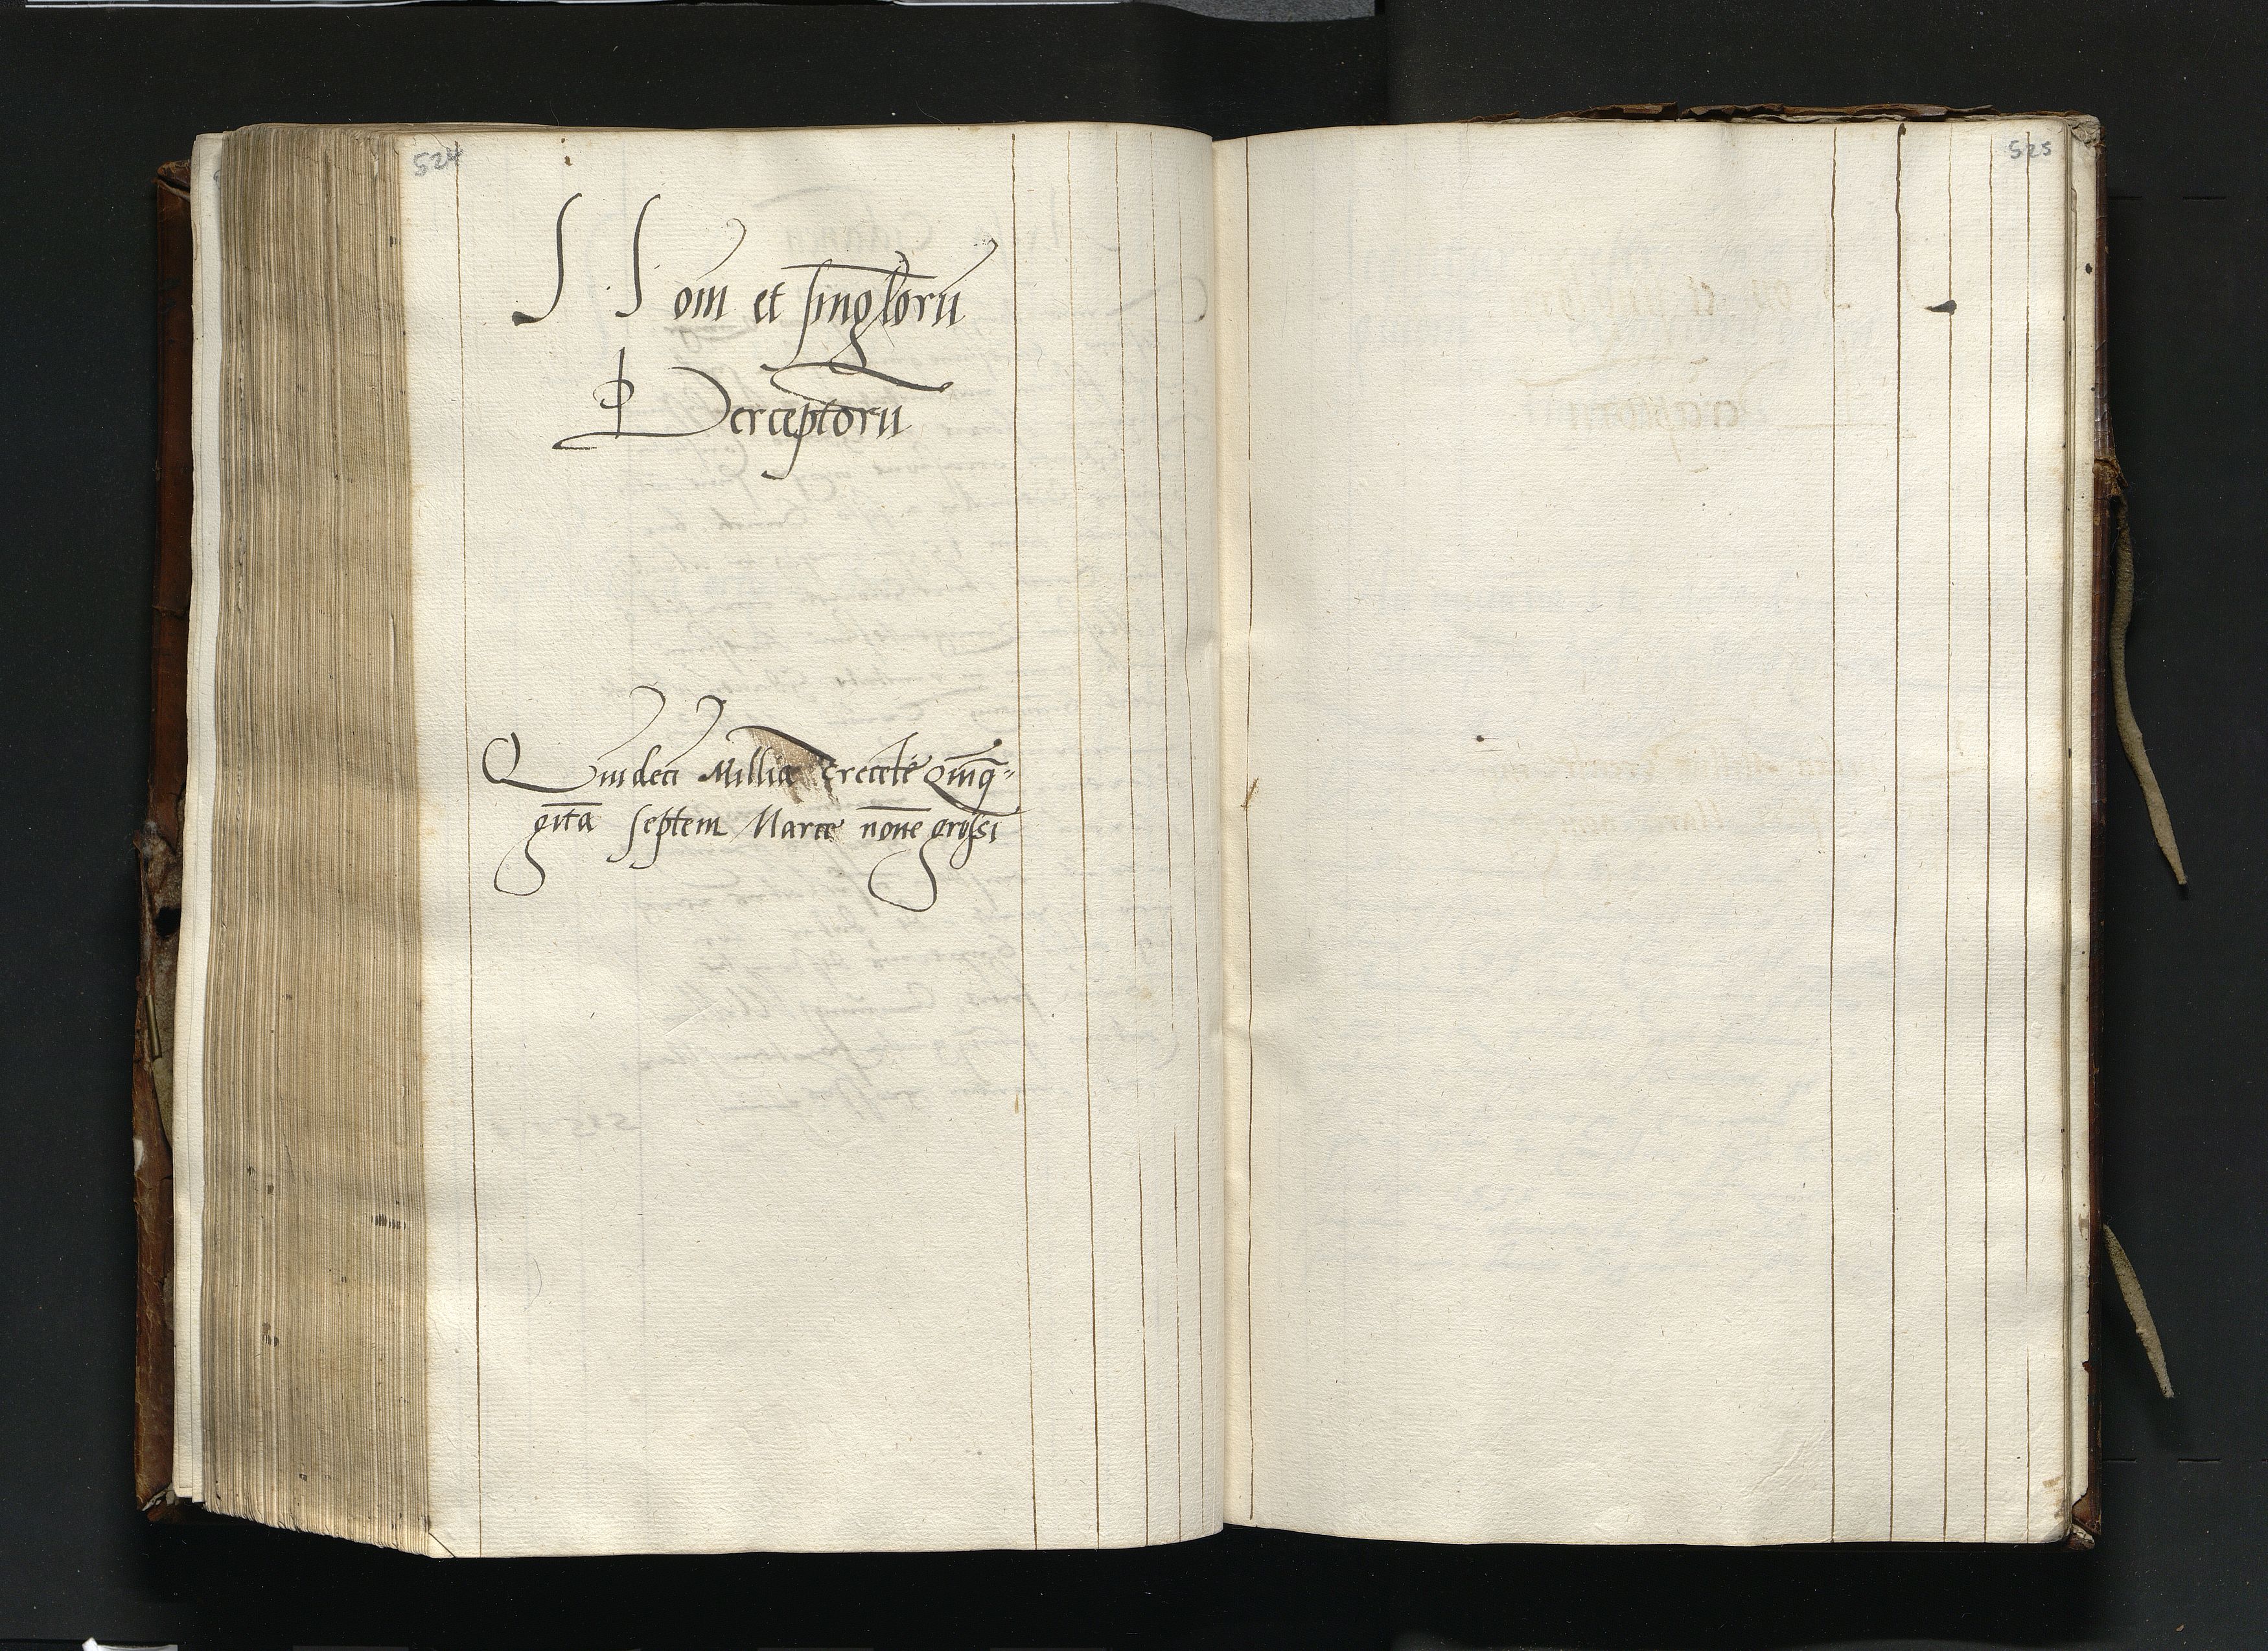 524
S S oīm et singlorū
Perceptorū
Quideci Millia trecēte Qīnq̄=
gīta septem Marce nōue grossi
525